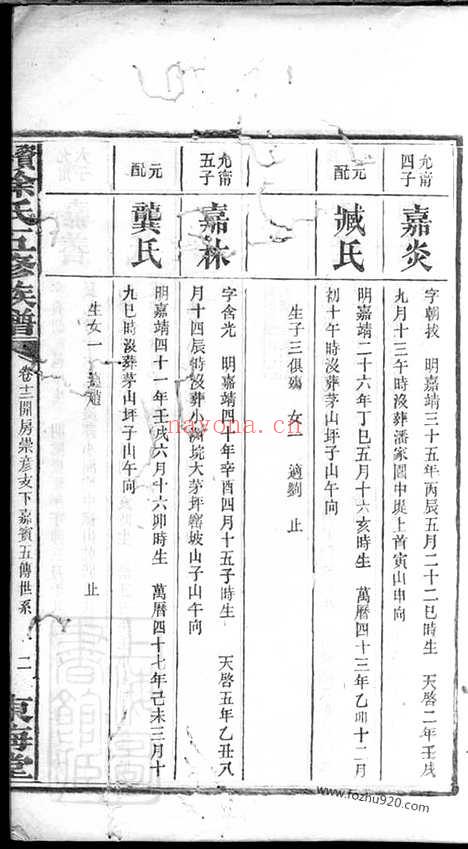 允甯四子
嘉炎
字朝拔 明嘉靖三十五年丙辰五月二十二巳時生 天啓二年壬戌
九月十三午時沒葬潘家園中堤上首寅山申向
元配
臧氏
明嘉靖二十六年丁巳五月十六亥時生 萬曆四十三年乙卯十二月
初十午時沒葬茅山坪子山午向
生子三俱殤 女一 適劉 止
允甯五子
嘉林
字含光 明嘉靖四十年辛酉四月十五子時生 天啓五年乙丑八
月十四辰時沒葬小 垸大茅坪 坡山子山午向
元配
龔氏
明嘉靖四十一年壬戌六月十六卯時生 萬曆四十七年己未三月十
九巳時沒葬茅山坪子山午向
生女一 適趙 止
徐氏五修族譜
卷十三開房崇彦支下嘉賓五傳世系
二
東海堂
nayona.cn
www.fozhu920.com